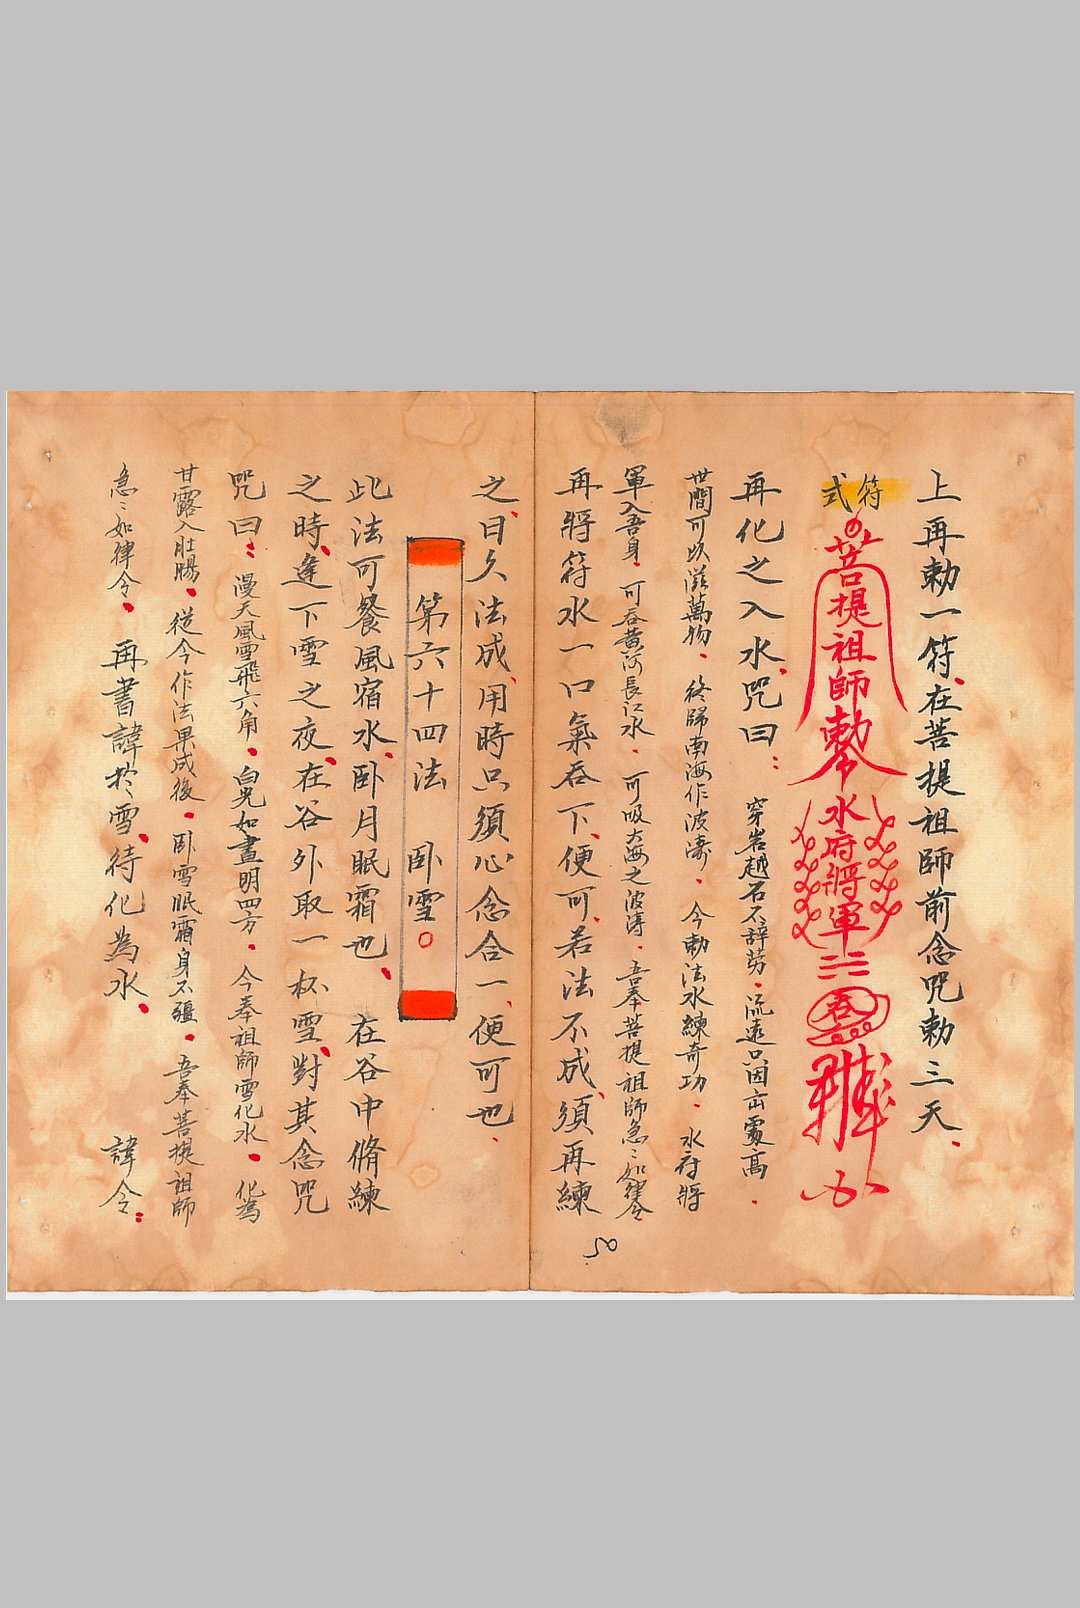 上再勅一符、在菩提祖師前念咒勅三天、
符式
菩提祖師勅令水府將軍
吞
再化之入水、咒曰：穿岩越石不辞劳．流遠只因出處高．
世間可以滋萬物．終歸南海作波濤．今勅法水練奇功．水府將
軍入吾身．可吞黃河長江水．可吸大海之波濤．吾奉菩提祖師急〻如律令
再將符水一口氣吞下、便可、若法不成、須再練
之、日久法成、用時只須心念合一、便可也、
第六十四法　卧雪。
此法可餐風宿水、卧月眠霜也、在谷中脩練
之時、逢下雪之夜、在谷外取一杯雪、對其念咒
咒曰：漫天風雪飛六角．白光如晝明四方．今奉祖師雪化水．化為
甘露入肚腸．從今作法果成後．卧雪眠霜身不疆．吾奉菩提祖師
急〻如律令．再書諱於雪、待化為水、諱令：
8.